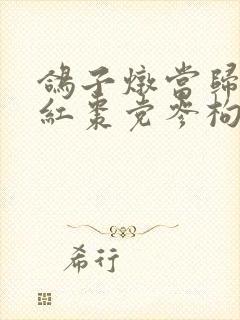 鴿子燉當歸
紅棗党參枸
希行